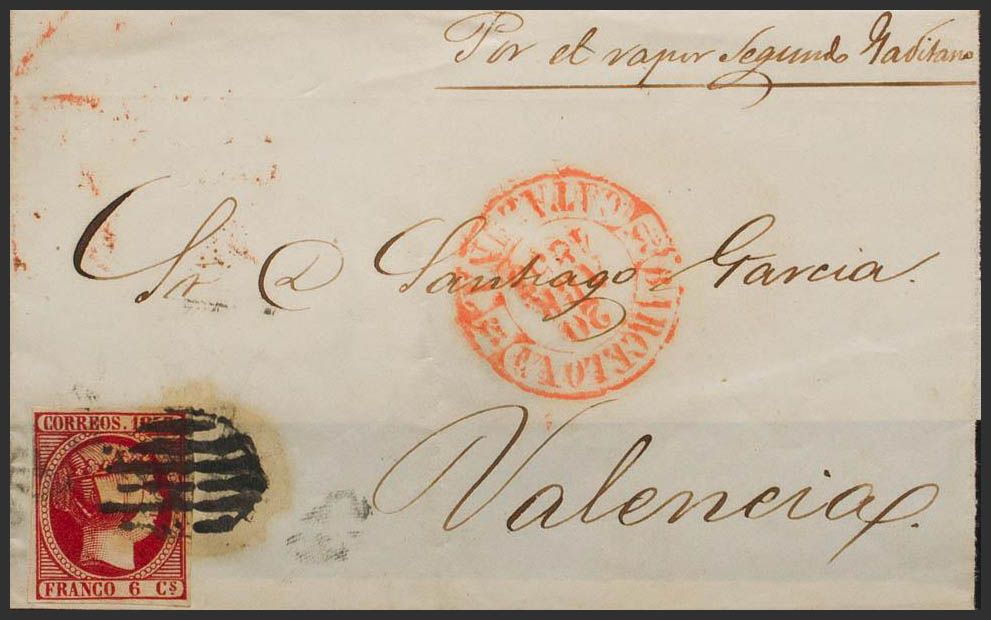 Por el vapor Segundo Gaditano
Sr D Santiago Garcia.
BARCELONA
CATALUÑA
20
18
Valencia.
CORREOS. 185
FRANCO 6 Cs